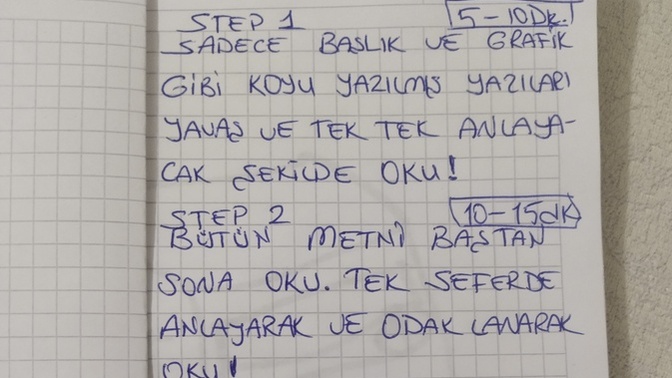 STEP 1 5-10Dk.
SADECE BAŞLIK VE GRAFİK
GİBİ KOYU YAZILMIŞ YAZILARI
YAVAŞ VE TEK TEK ANLAYA-
CAK ŞEKİLDE OKU!
STEP 2 10-15dk
BÜTÜN METNİ BAŞTAN
SONA OKU. TEK SEFERDE
ANLAYARAK VE ODAKLANARAK
OKU!